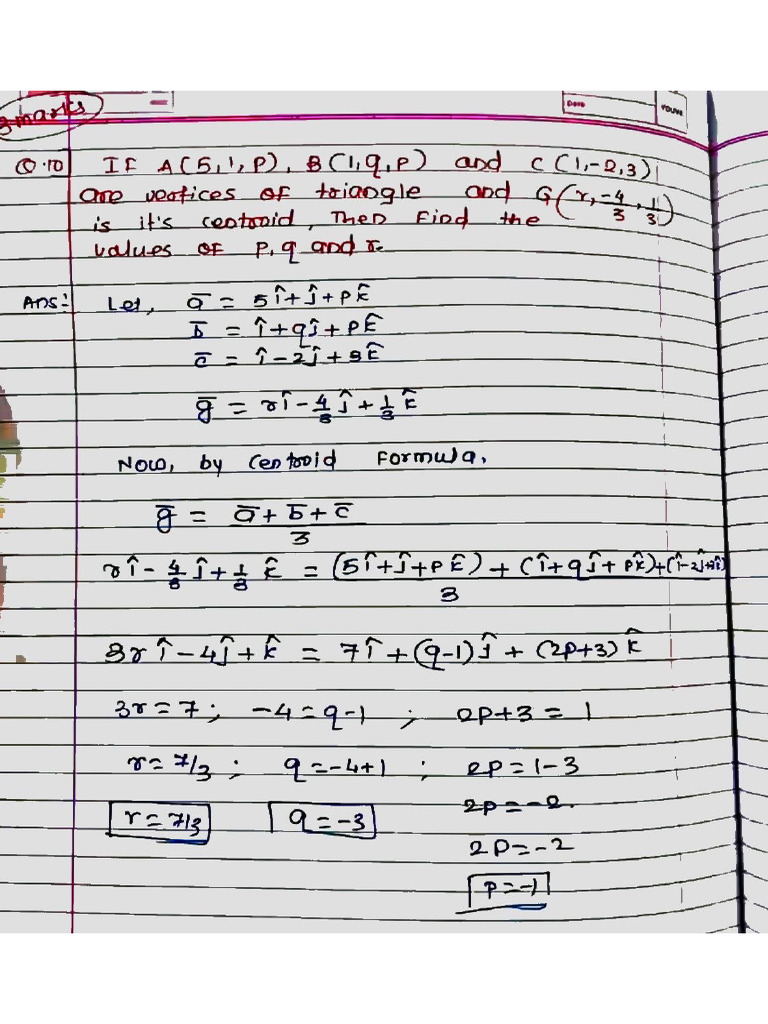 3marks
Date
YOUVA
Q.10 If A(5,1,P), B(1,q,P) and C(1,-2,3)
are vertices of triangle and G(r,-4/3,1/3)
is it's centroid, Then Find the
values of P,q and r.
Ans:- Let, a̅ = 5î+ĵ+pk̂
b̅ = î+qĵ+pk̂
c̅ = î-2ĵ+3k̂
g̅ = rî-4/3ĵ+1/3k̂
Now, by Centroid Formula.
g̅ = a̅+b̅+c̅/3
rî-4/3ĵ+1/3k̂ = (5î+ĵ+pk̂)+(î+qĵ+pk̂)+(î-2ĵ+3k̂)/3
3rî-4ĵ+k̂ = 7î+(q-1)ĵ+(2p+3)k̂
3r=7; -4=q-1 ; 2p+3=1
r=7/3 ; q=-4+1 ; 2p=1-3
r=7/3 q=-3 2p=-2.
2p=-2
p=-1